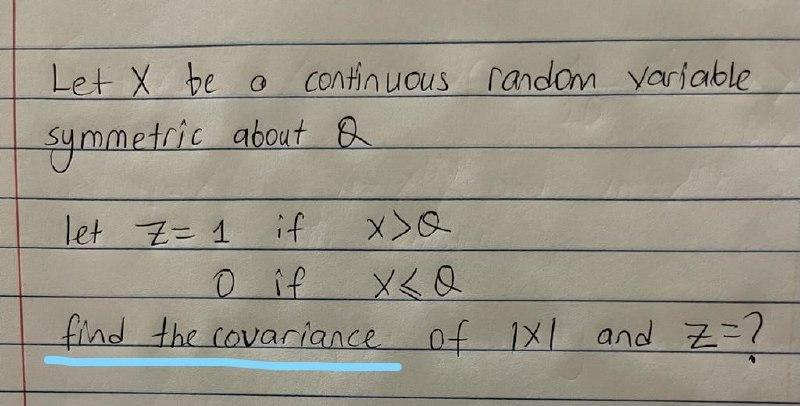 Let X be a continuous random variable
symmetric about Q
let Z = 1 if X>Q
0 if X≤Q
find the covariance of |X| and Z=?